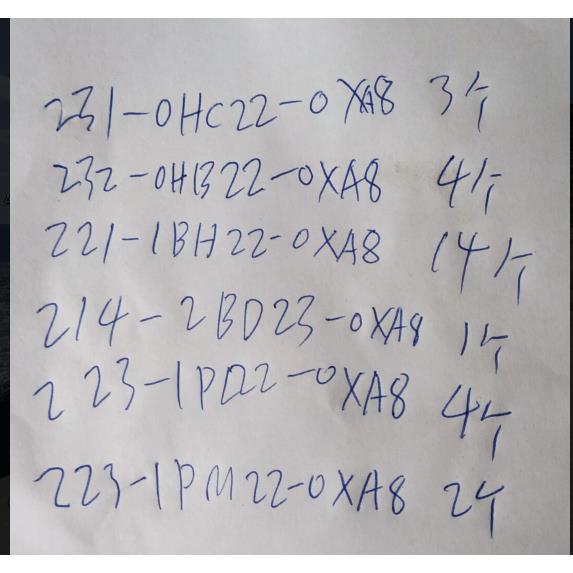 231-0HC22-0XA8 3个
232-0HB22-0XA8 4个
221-1BH22-0XA8 14个
214-2BD23-0XA8 1个
223-1PL22-0XA8 4个
223-1PM22-0XA8 2个